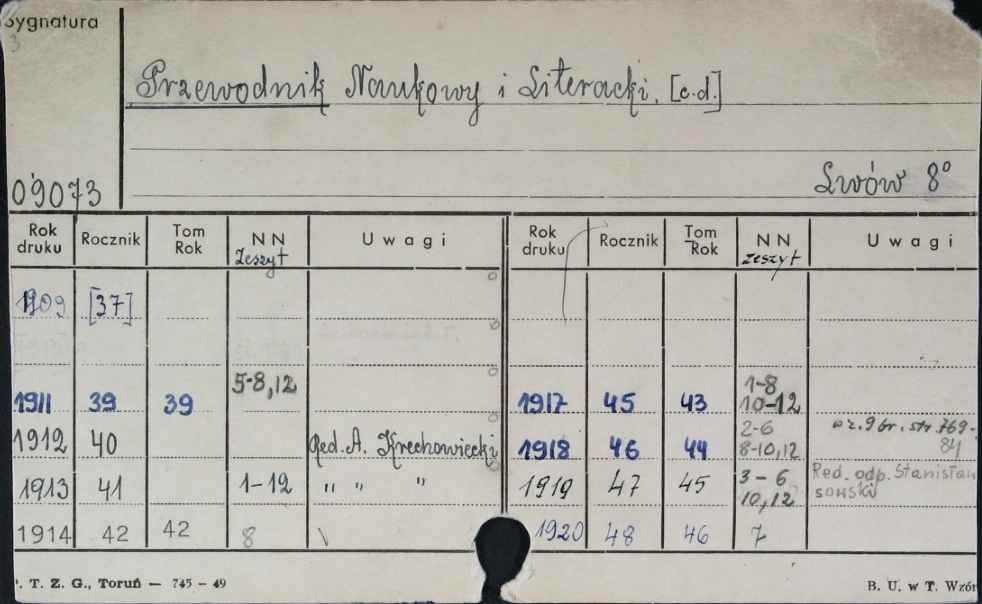 Sygnatura
3
Przewodnik Naukowy i Literacki. [c.d.]
09073
Lwów 8°
Rok druku Rocznik Tom Rok NN Zeszyt Uwagi
1909 [37]
1911 39 39 5-8,12
1912 40 Red. A. Krechowiecki
1913 41 1-12 " " "
1914 42 42 8
Rok druku Rocznik Tom Rok NN zeszyt Uwagi
1917 45 43 1-8 10-12
1918 46 44 2-6 8-10,12 w z. 9 br. str 769-84
1919 47 45 3-6 10,12 Red. odp. Stanisław
1920 48 46 7
. T. Z. G., Toruń — 745 – 49
B. U. w T. Wzór